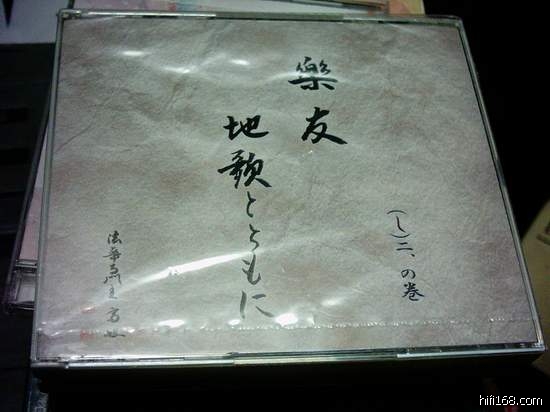 樂友
地歌とともに
(し)二、の巻
hifi168.com